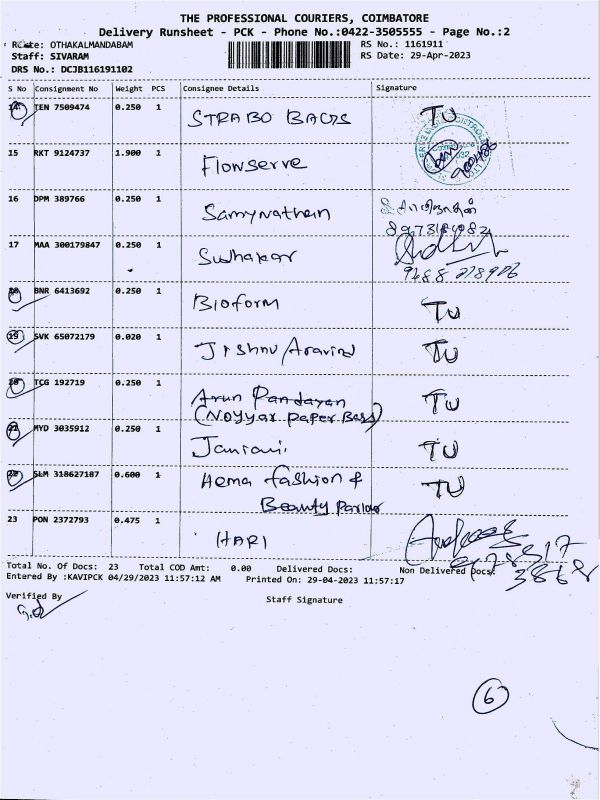 THE PROFESSIONAL COURIERS, COIMBATORE
Delivery Runsheet - PCK - Phone No.:0422-3505555 - Page No.:2
Route: OTHAKALMANDABAM RS No.: 1161911
Staff: SIVARAM RS Date: 29-Apr-2023
DRS No.: DCJB116191102
S No Consignment No Weight PCS Consignee Details Signature
14 TEN 7509474 0.250 1 STRABO BAGS TU
15 RKT 9124737 1.900 1 Flowserve
16 DPM 389766 0.250 1 Samynathan
17 MAA 300179847 0.250 1 Sudhakar
18 BNR 6413692 0.250 1 Bioform TU
19 SVK 65072179 0.020 1 Jishnu Aravind TU
20 TCG 192719 0.250 1 Arun Pandayan TU
(Noyyar Paper Bags)
MYD 3035912 0.250 1 Janrani TU
SLM 318627187 0.600 1 Hema fashion & TU
Beauty Parlour
23 PON 2372793 0.475 1 HARI
Total No. Of Docs: 23 Total COD Amt: 0.00 Delivered Docs: Non Delivered Docs:
Entered By :KAVIPCK 04/29/2023 11:57:12 AM Printed On: 29-04-2023 11:57:17
Verified By
Staff Signature
6